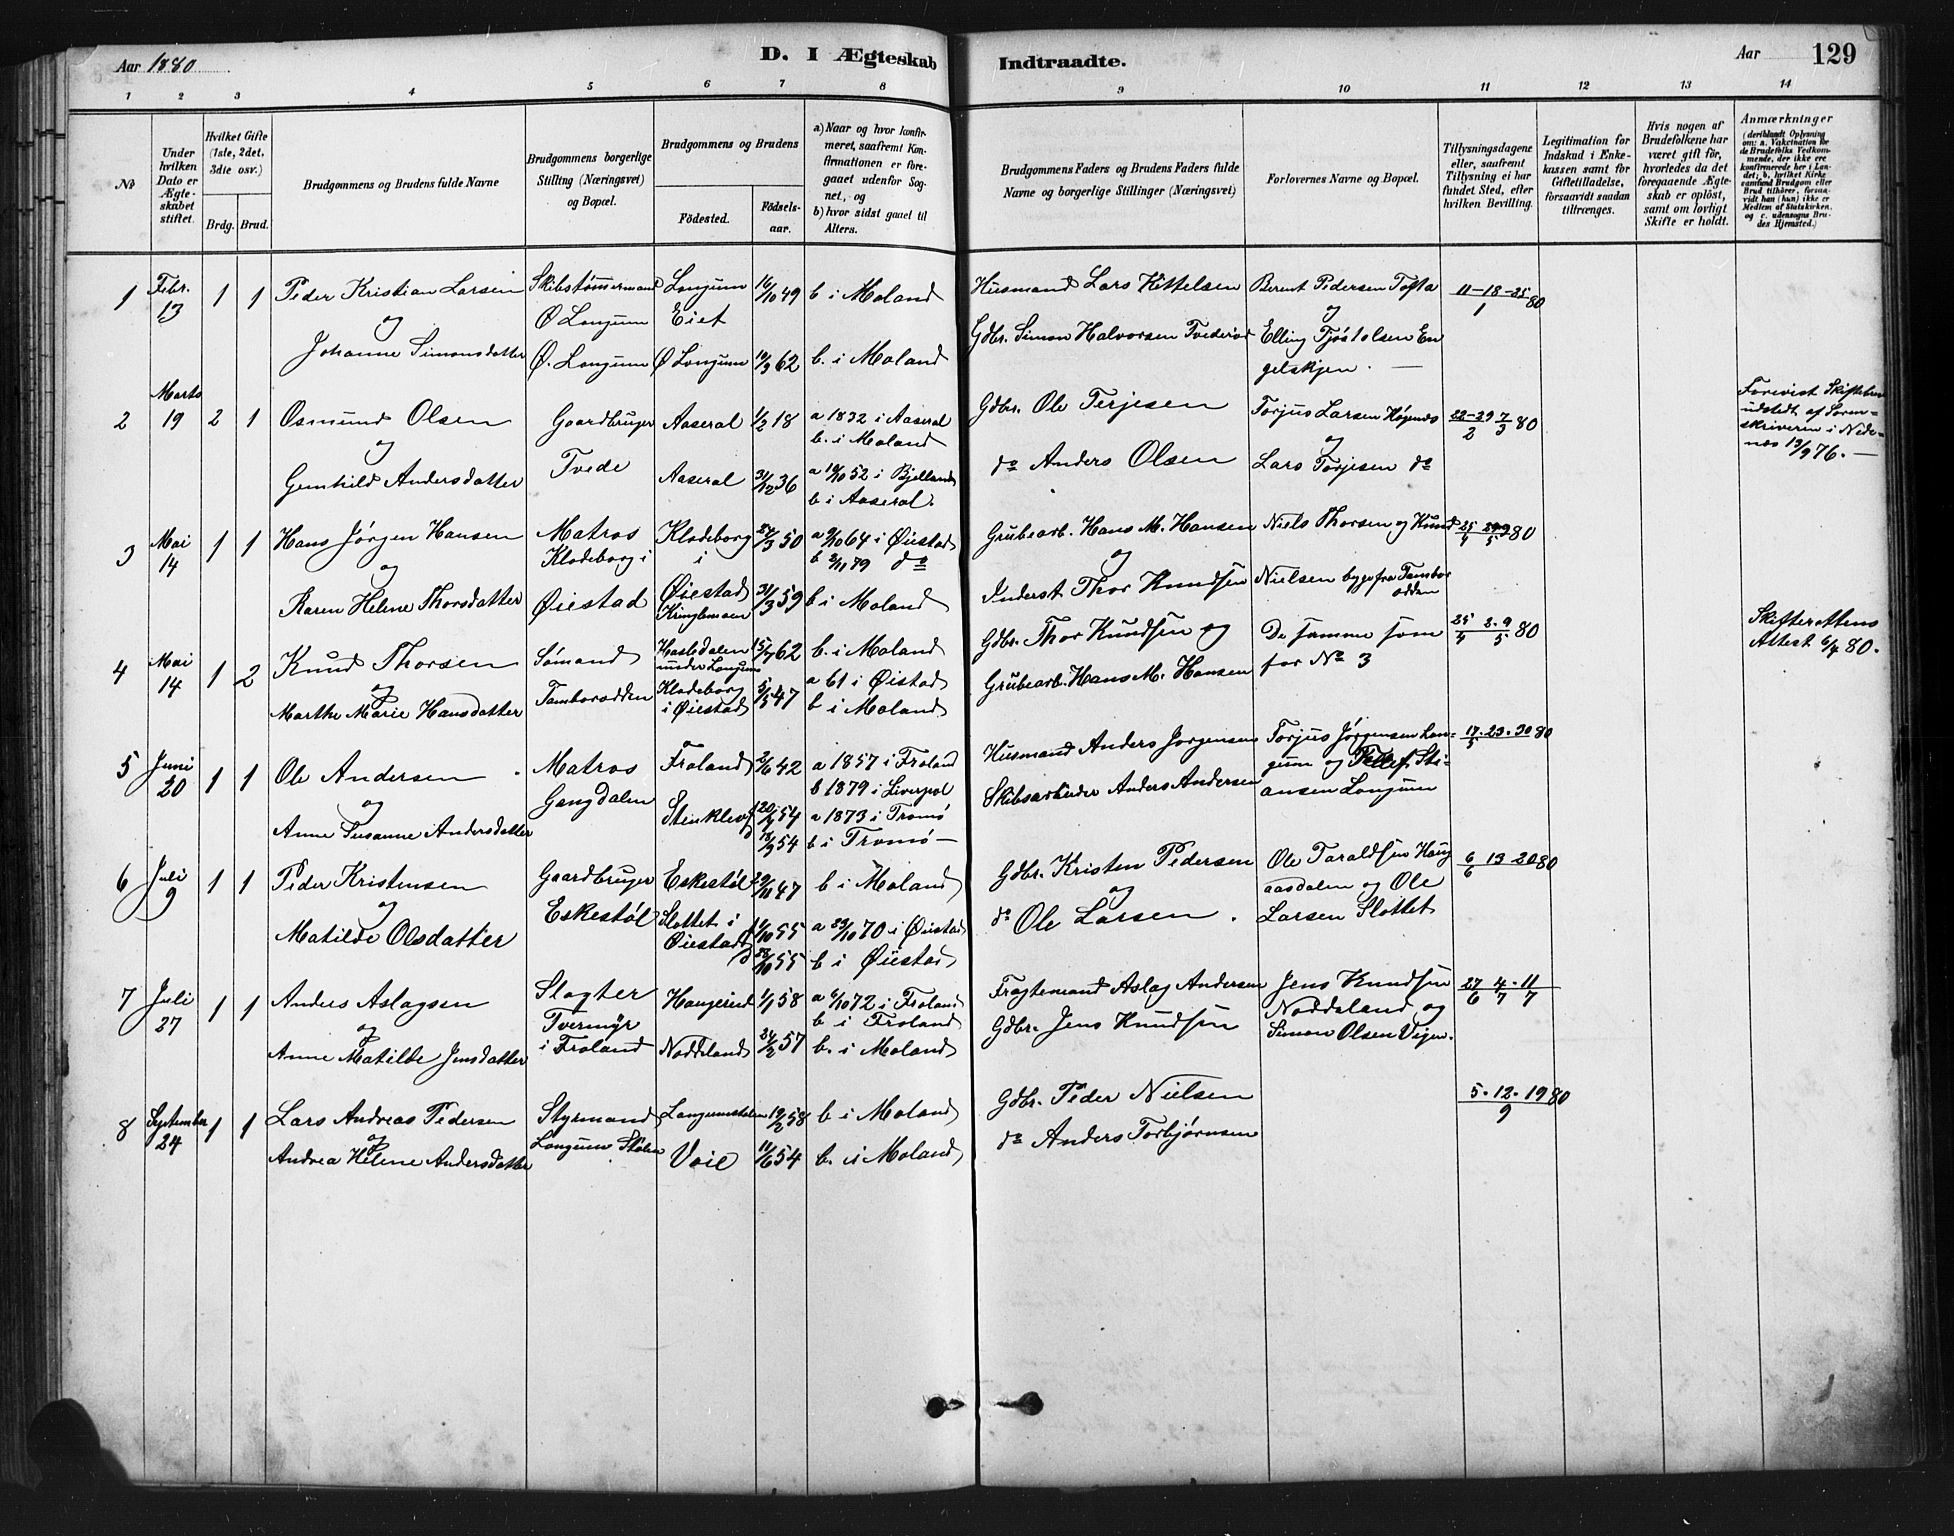 Aar 1880
D. I Ægteskab Indtraadte.
Aar 129
1 2 3 4 5 6 7 8 9 10 11 12 13 14
No
Under hvilken Dato er Ægteskabet stiftet.
Hvilket Gifte (1ste, 2det, 3die osv.)
Brdg. Brud.
Brudgommens og Brudens fulde Navne
Brudgommens borgerlige Stilling (Næringsvei) og Bopæl.
Brudgommens og Brudens
Fødested.
Fødselsaar.
a) Naar og hvor konfirmeret, saafremt Konfirmationen er foregaaet udenfor Sognet, og
b) hvor sidst gaaet til Alters.
Brudgommens Faders og Brudens Faders fulde Navne og borgerlige Stillinger (Næringsvei)
Forlovernes Navne og Bopæl.
Tillysningsdagene eller, saafremt Tillysning ei har fundet Sted, efter hvilken Bevilling.
Legitimation for Indskud i Enkekassen samt for Giftetilladelse, forsaavidt saadan tiltrænges.
Hvis nogen af Brudefolkene har været gift før, hvorledes da det foregaaende Ægteskab er opløst, samt om lovligt Skifte er holdt.
Anmærkninger
(deriblandt Oplysning om: a. Vakcination for de Brudefolks Vedkommende, der ikke ere konfirmerede her i Landet; b. hvilket Kirkesamfund Brudgom eller Brud tilhører, forsaavidt han (hun) ikke er Medlem af Statskirken, og c. udensogns Brudes Hjemsted.)
1 Febr. 13 1 1 Peder Kristian Larsen Skibstømmermand Longum 16/10 49 b i Moland Husmand Lars Kittelsen Berent Pedersen Tofta 11-18-25/1 80
og Ø Longum Eiet og
Johanne Simonsdatter Ø. Longum Ø Longum 10/9 62 b. i Moland Gdbr. Simon Halvorsen Elling Tjøstolsen En
gelskjen.
2 Marts 19 2 1 Osmund Olsen Gaardbruger Aaseral 1/2 18 a 1832 i Aaseral Gdbr. Ole Terjesen Torjus Larsen 22-29/2 7/3 80 Forevist Skiftebrev
og b. i Moland og udstedt af Soren-
Tvede skriveren i Nede-
Gemhild Andersdatter Aaseral 31/12 36 a 10/10 52 i Bjelland do Anders Olsen Lars Torjesen do næs 13/9 76.
b i Aaseral.
3 Mai 14 1 1 Hans Jørgen Hansen Matros Klodeborg 24/3 50 a 9/10 64 i Øiestad Grubearb. Hans M. Hansen Niels Thorsen og Knud 80
og Klodeborg i i b 2/11 79 do og
Karen Helene Thorsdatter Øiestad Øiestad 31/3 59 b i Moland Inderst Thor Knudsen Nielsen begge fra Tambor
Kringlemoen odden
4 Mai 14 1 2 Knud Thorsen Sømand Hasledalen 15/7 62 b. i Moland Gdbr. Thor Knudsen og De samme som 25/4 2.9/5 80 Skifterettens
og under Longum for No 3 Attest 6/4 80.
Marthe Marie Hansdatter Tamborodden Klodeborg 5/5 47 a 61 i Øistad Grubearb. Hans M. Hansen
i Øiestad b i Moland
5 Juni 20 1 1 Ole Andersen Matros Froland 2/6 42 a 1857 i Froland Husmand Anders Jørgensen Torjus Jørgensen Lon- 17.23.30/5 80
og Gangdalen b 1879 i Liverpol gum og Tellef Sti-
Anne Susanne Andersdatter Stenklev f 20/7 54 a 1873 i Tromø Skibsarbeider Anders Andersen ansen Longum
d 18/9 54 b i Tromø
6 Juli 9 1 1 Peder Kristensen Gaardbruger Eskestøl 29/11 47 b i Moland Gdbr. Kristen Pedersen Ole Taraldsen Haug 6 13 20/6 80
og Eskestøl og aasdalen og Ole
Matilde Olsdatter Slottet i f 1/10 55 a 23/10 70 i Øiestad do Ole Larsen. Larsen Slottet
Øiestad d 28/10 55 b i Øiestad
7 Juli 27 1 1 Anders Aslagsen Slagter Haugerud 1/1 58 a 6/10 72 i Froland Fragtemand Aslag Andersen Jens Knudsen 27/6 4/7 11/7
og Tvermyr b i Froland Noddeland og
Anne Matilde Jensdatter i Froland Noddeland 24/2 57 b. i Moland Gdbr. Jens Knudsen Simon Olsen Vejen.
8 September 24 1 1 Lars Andreas Pedersen Styrmand Longumstølen 19/2 58 b i Moland Gdbr. Peder Nielsen 5.12.19/9 80
og Longum Stølen
Andrea Helene Andersdatter Voie 11/6 54 b. i Moland do Anders Torbjørnsen